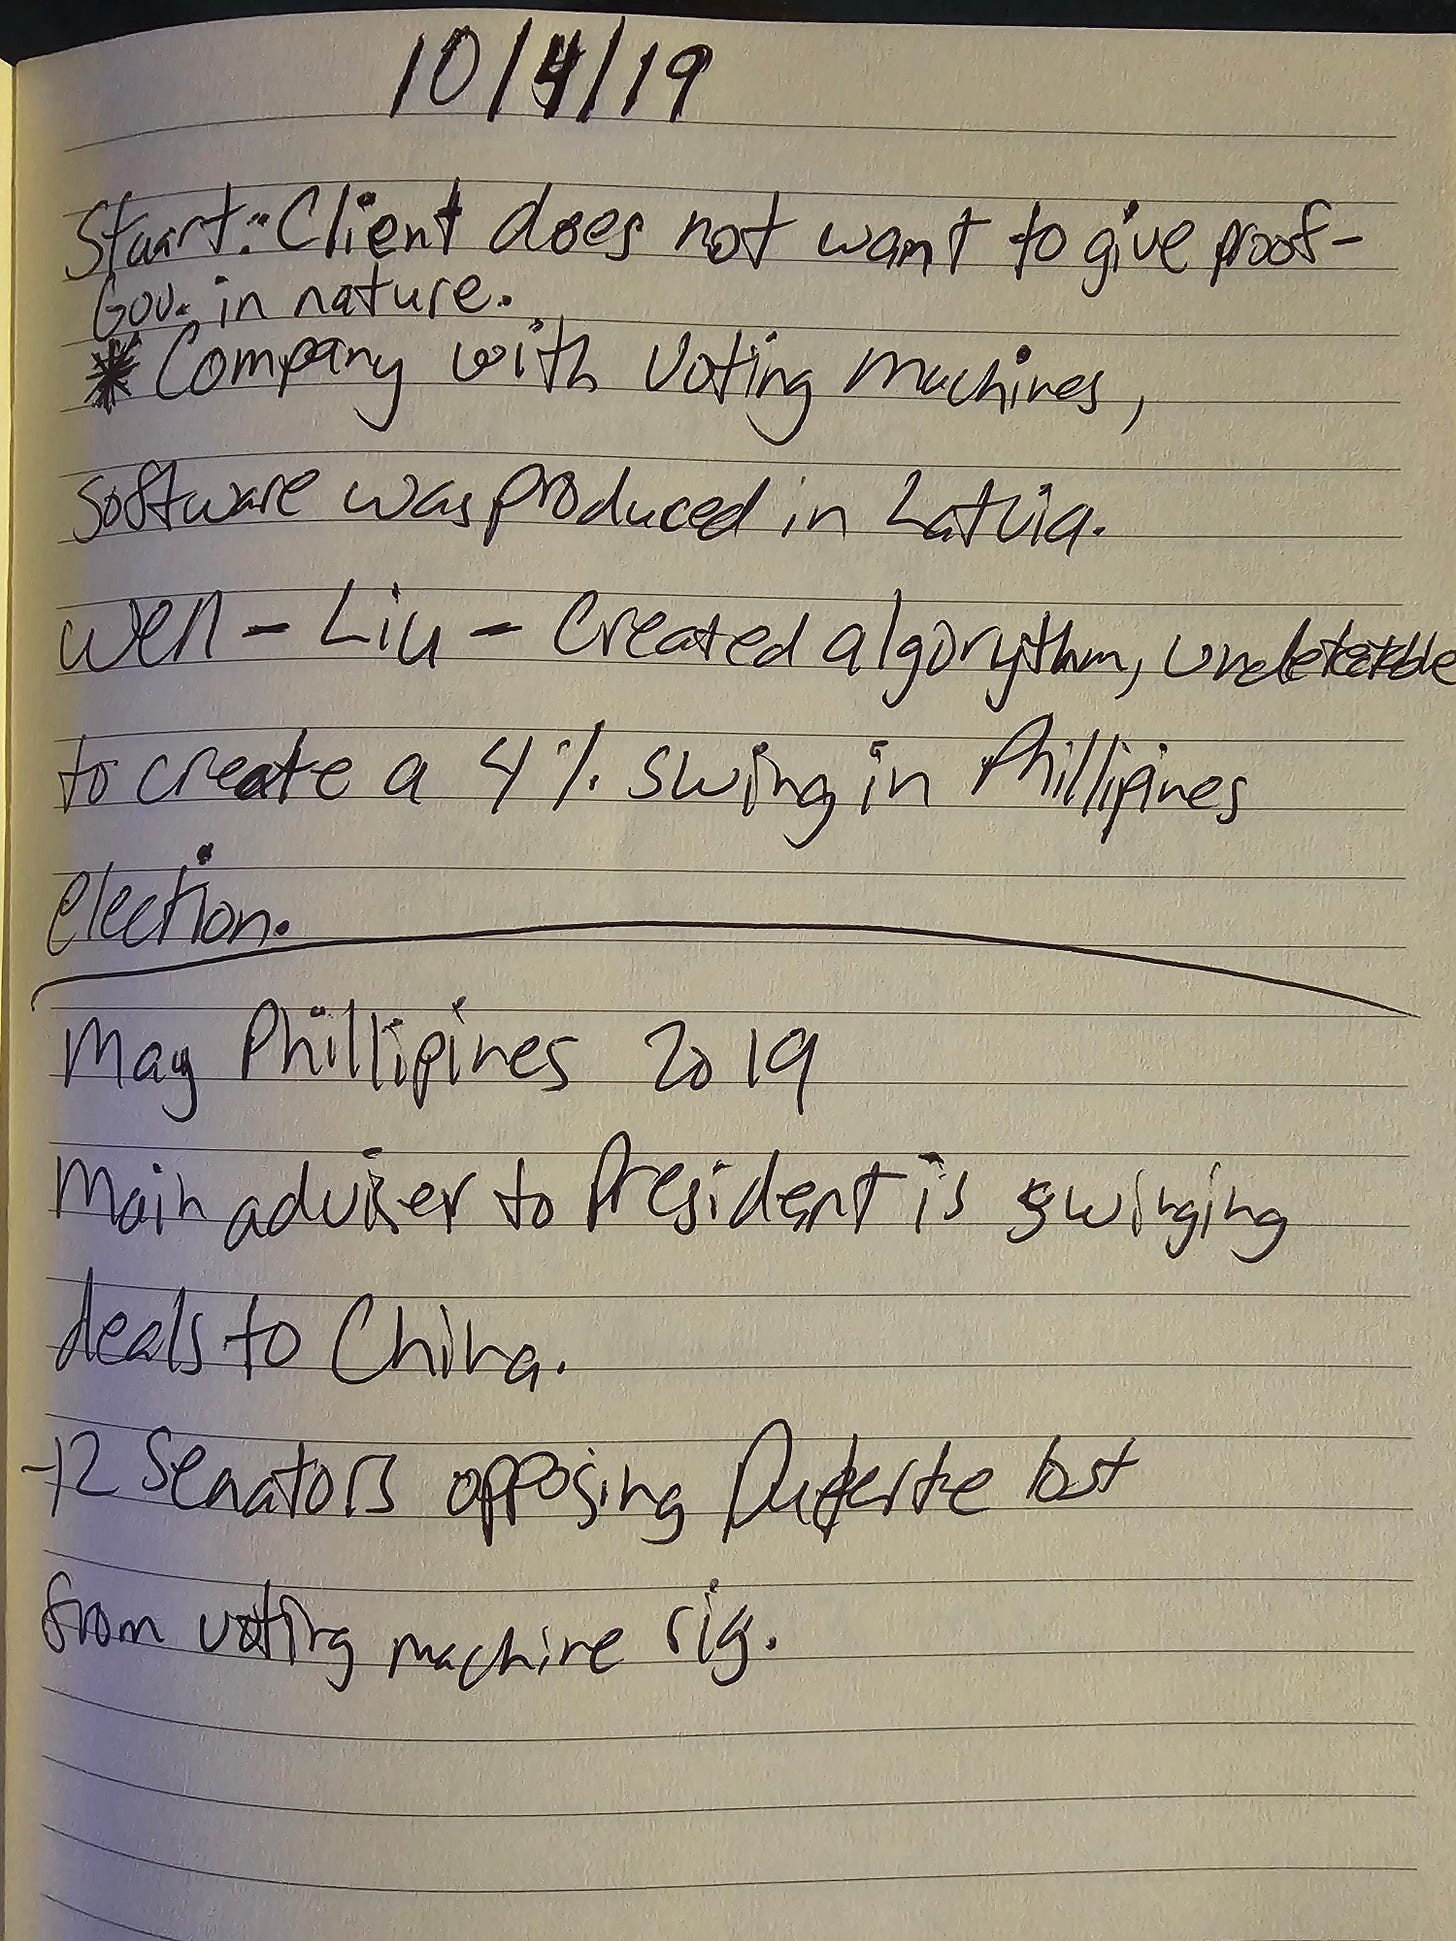 10/4/19
Stuart: Client does not want to give proof-
Gov. in nature.
* Company with voting machines,
software was produced in Latvia.
Wen - Liu - Created algorythm, undetectable
to create a 4% swing in Phillipines
election.
May Phillipines 2019
Main adviser to President is swinging
deals to China.
-12 Senators opposing Duterte lost
from voting machine rig.